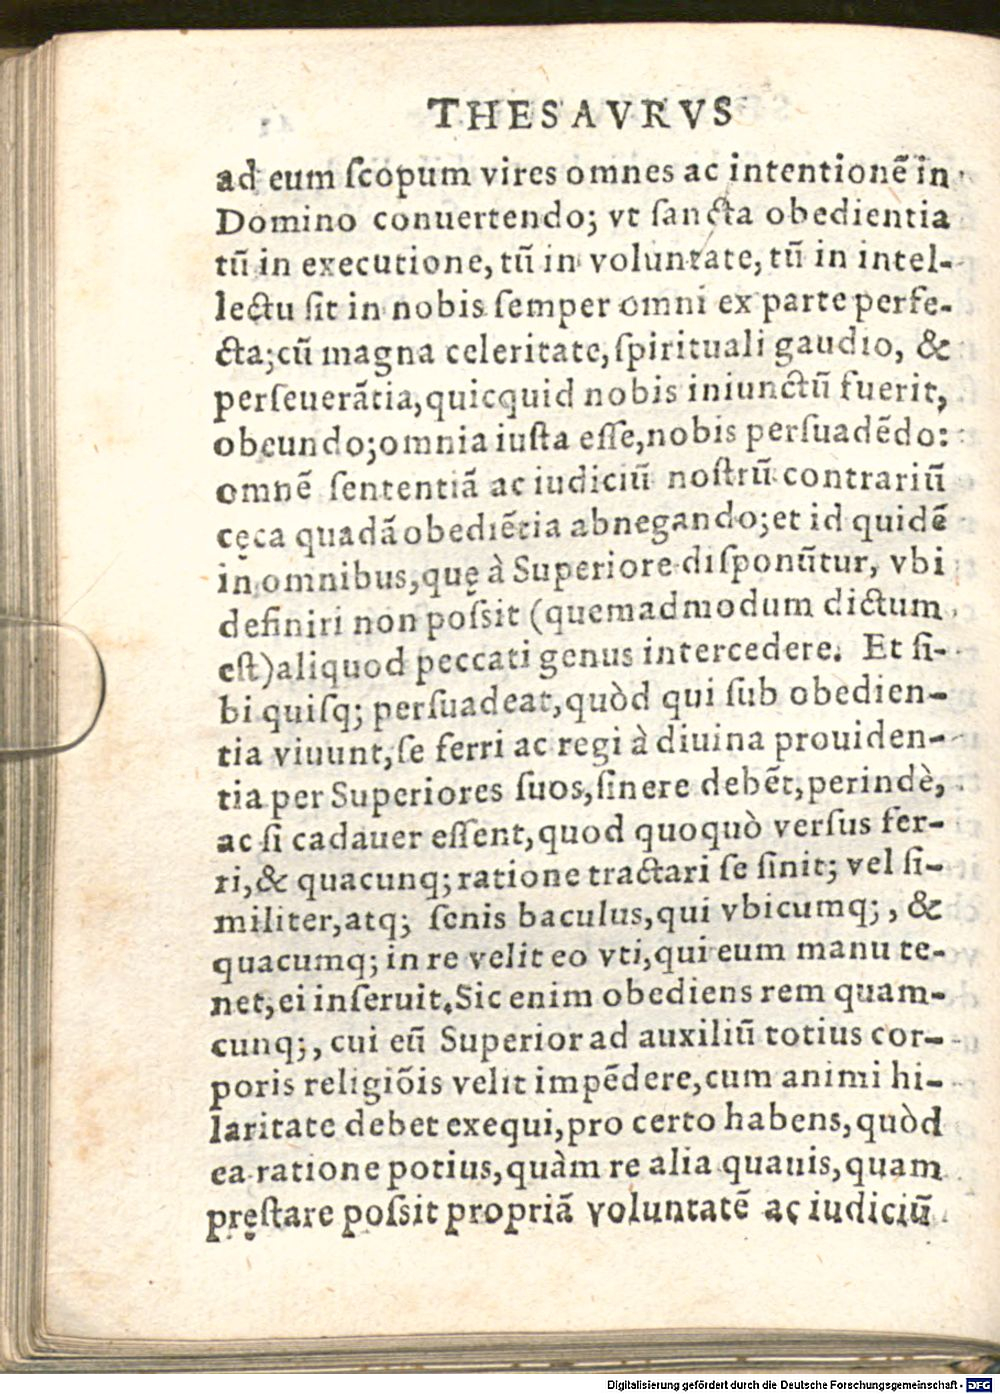 THESAVRVS
ad eum ſcopum vires omnes ac intentionẽ in
Domino conuertendo; vt ſancta obedientia
tũ in executione, tũ in voluntate, tũ in intel-
lectu ſit in nobis ſemper omni ex parte perfe-
cta; cũ magna celeritate, ſpirituali gaudio, &
perſeuerãtia, quicquid nobis iniunctũ fuerit,
obeundo; omnia iuſta eſſe, nobis perſuadẽdo:
omnẽ ſententiã ac iudiciũ noſtrũ contrariũ
cęca quadã obediẽtia abnegando; et id quidẽ
in omnibus, quę à Superiore diſponũtur, vbi
definiri non poſsit (quemadmodum dictum
eſt) aliquod peccati genus intercedere. Et ſi-
bi quiſq; perſuadeat, quòd qui ſub obedien-
tia viuunt, ſe ferri ac regi à diuina prouiden-
tia per Superiores ſuos, ſinere debẽt, perindè,
ac ſi cadauer eſſent, quod quoquò verſus fer-
ri, & quacunq; ratione tractari ſe ſinit; vel ſi-
militer, atq; ſenis baculus, qui vbicumq;, &
quacumq; in re velit eo vti, qui eum manu te-
net, ei inſeruit. Sic enim obediens rem quam-
cunq;, cui eũ Superior ad auxiliũ totius cor-
poris religiõis velit impẽdere, cum animi hi-
laritate debet exequi, pro certo habens, quòd
ea ratione potius, quàm re alia quauis, quam
pręſtare poſsit propriã voluntatẽ ac iudiciũ
Digitalisierung gefördert durch die Deutsche Forschungsgemeinschaft - DFG